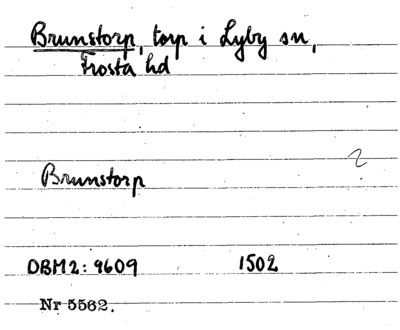 Brunstorp, torp i Lyby sn,
Frosta hd
Brunstorp
DBM2: 9609 1502
Nr 5562.